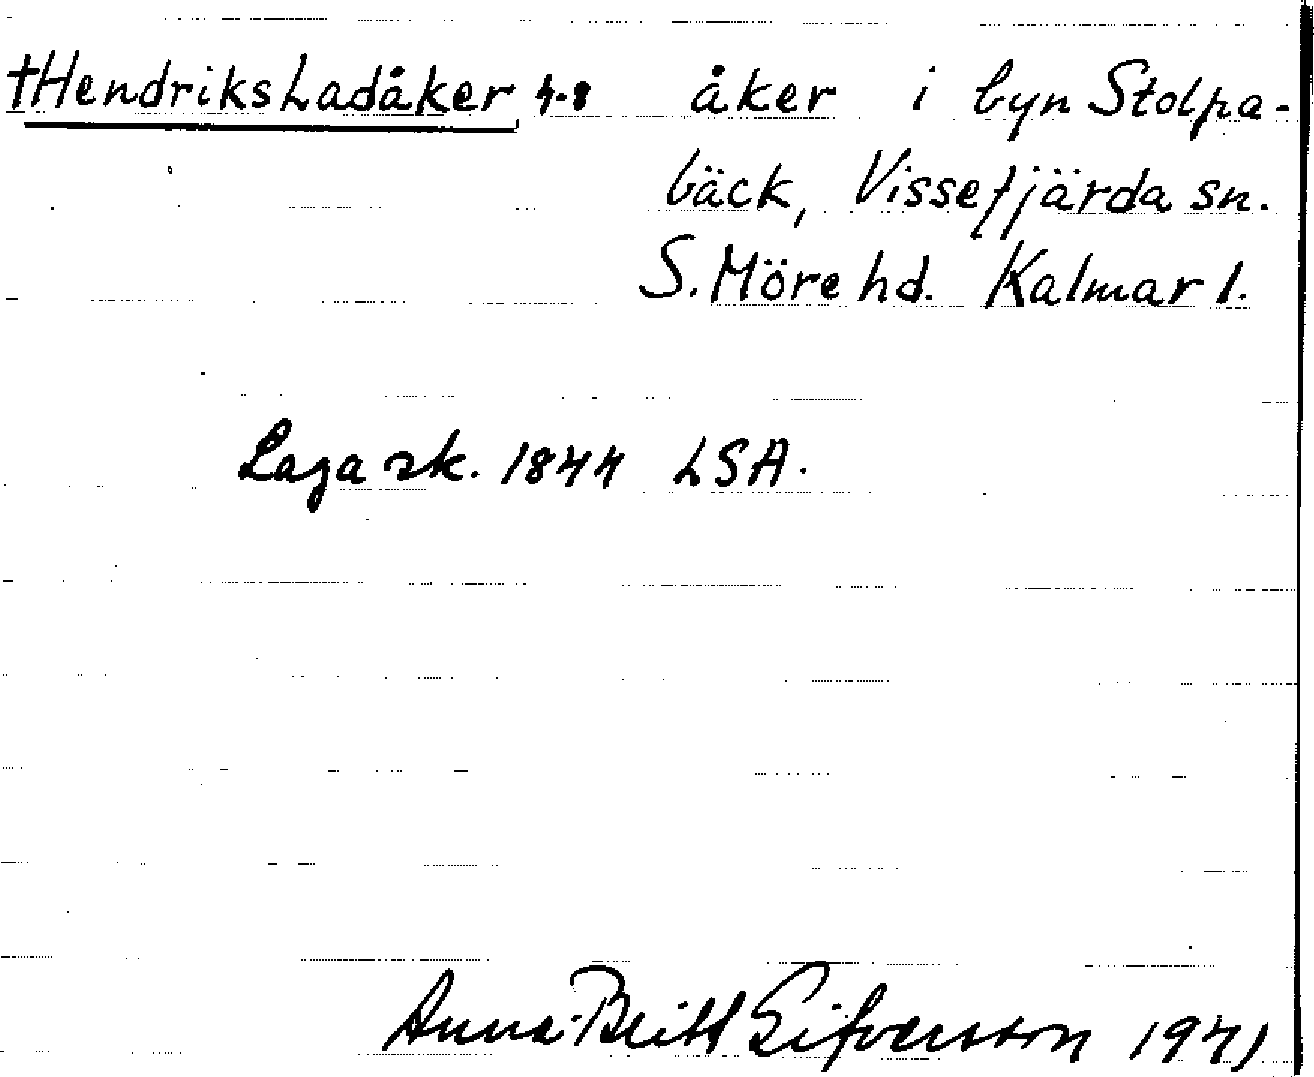 †Hendriks Ladåker 4.8 åker i byn Stolpa-
bäck, Vissefjärda sn.
S. Möre hd. Kalmar l.
Laga sk. 1844 LSA.
Anna-Britt Sifversson 1971